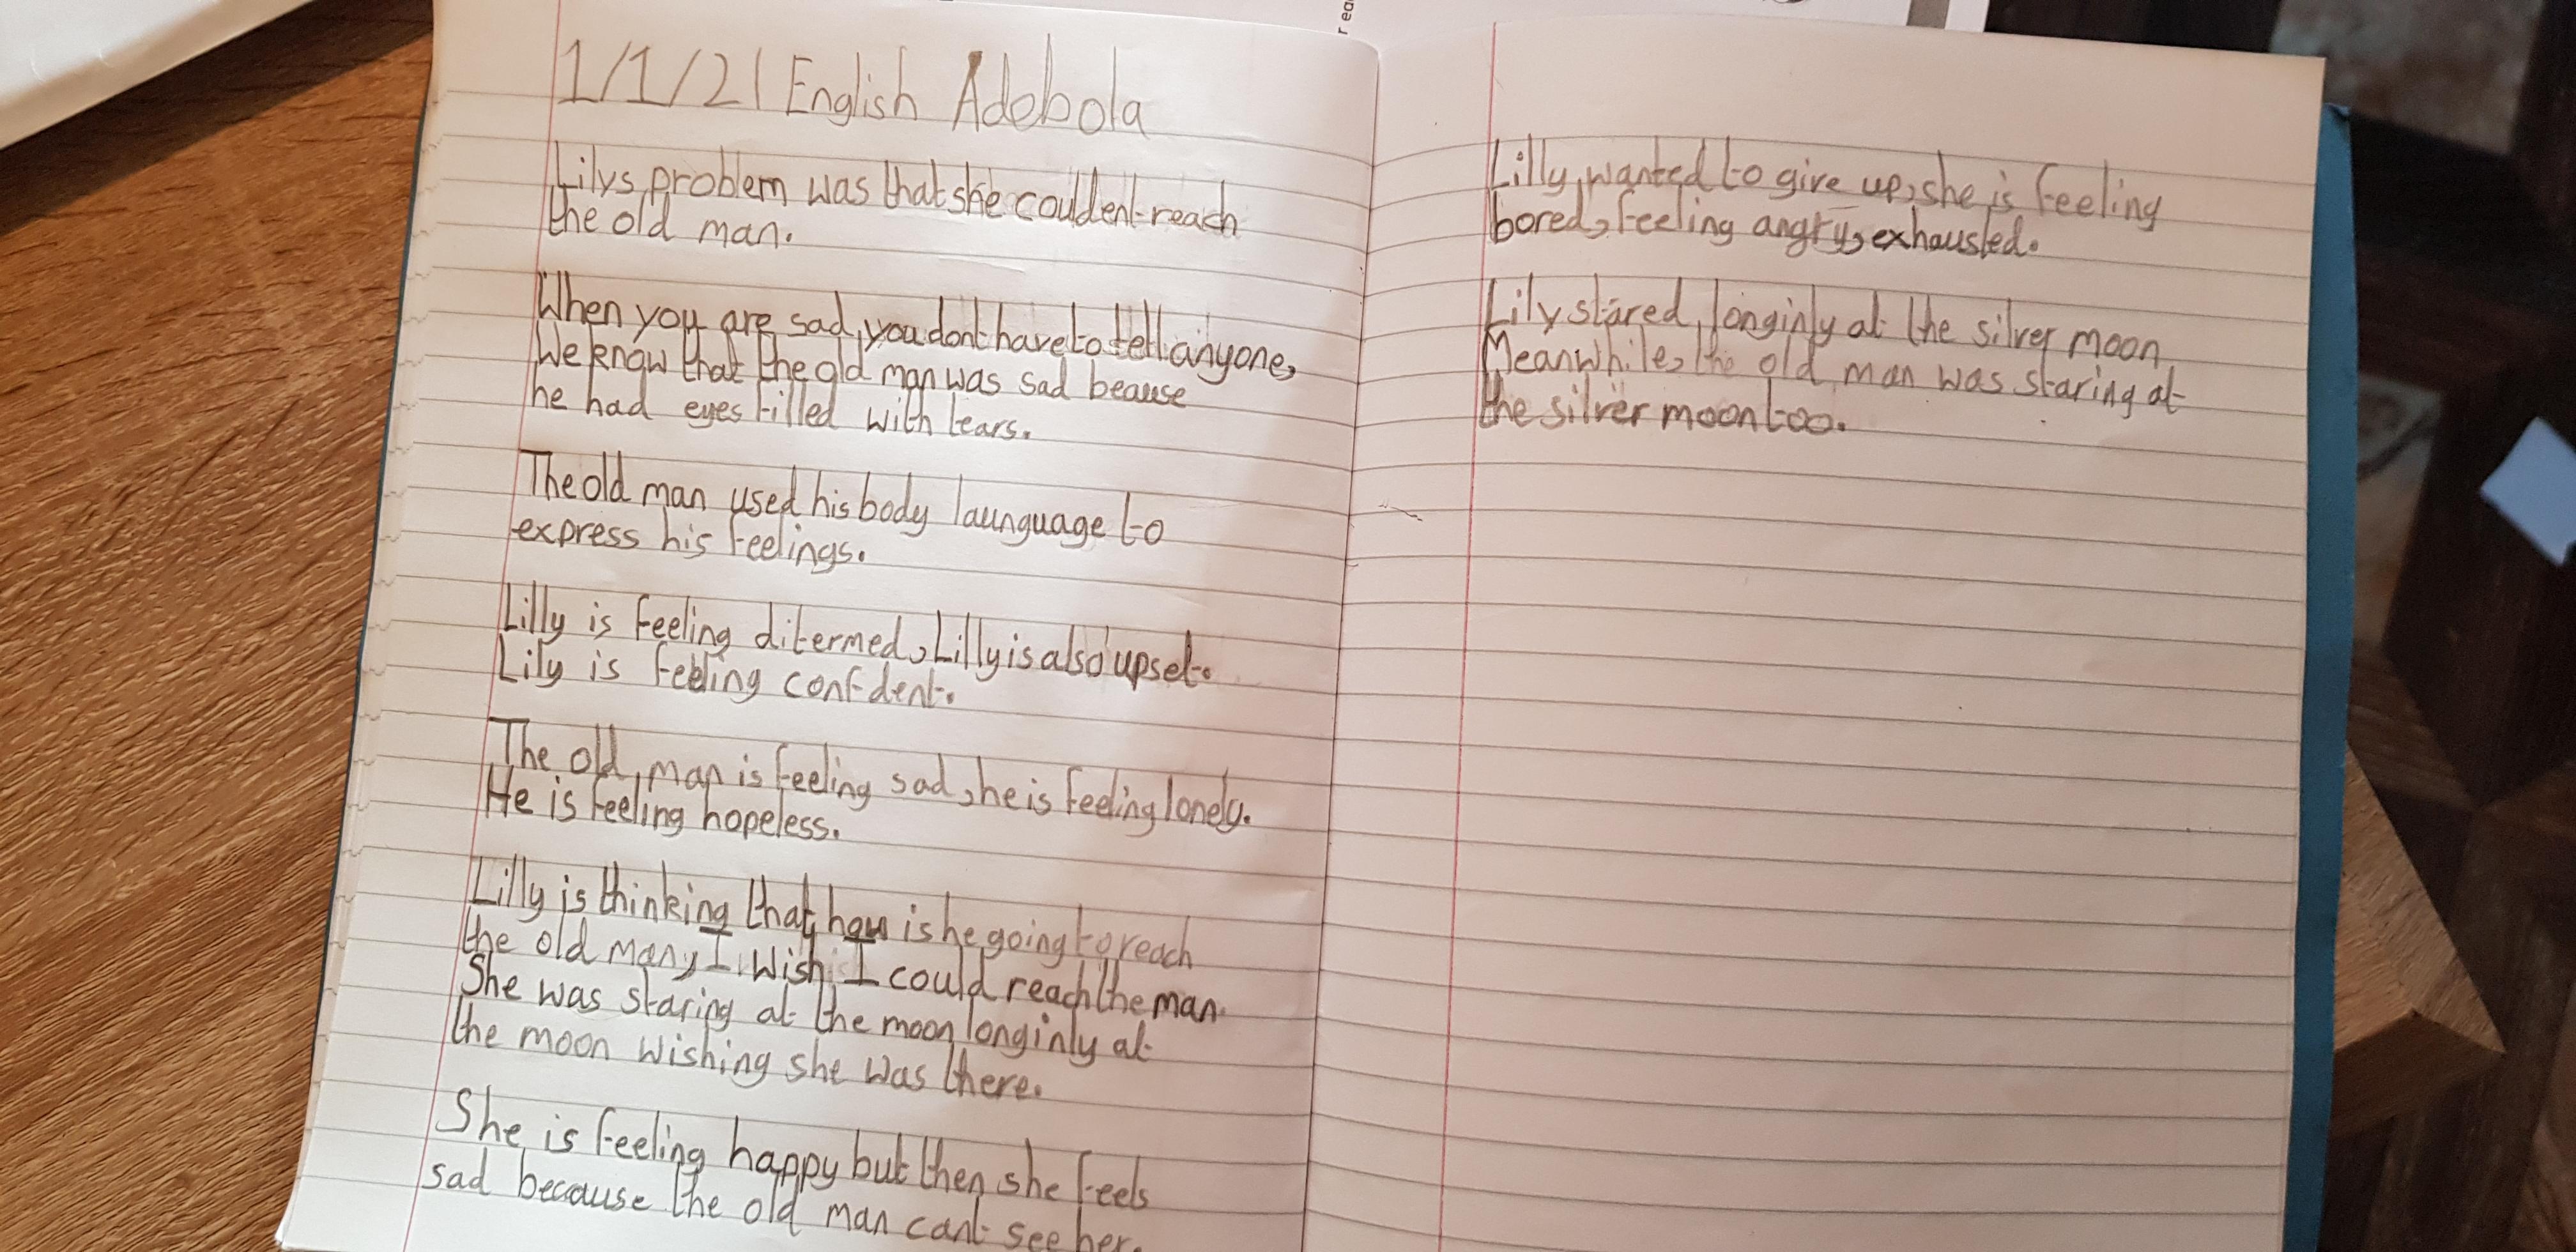 r ea
1/1/21 English Adebola
Lilys problem was that she couldent reach
the old man.
When you are sad, you dont have to tell anyone,
We know that the old man was sad beause
he had eyes filled with tears.
The old man used his body launguage to
express his feelings.
Lilly is feeling ditermed, Lilly is also upset.
Lily is feeling confdent.
The old man is feeling sad, he is feeling lonely.
He is feeling hopeless.
Lilly is thinking that how is he going to reach
the old man, I wish I could reach the man.
She was staring at the moon longinly at
the moon wishing she was there.
She is feeling happy but then she feels
sad because the old man cant see her.
Lilly wanted to give up, she is feeling
bored, feeling angry, exhausted.
Lily stared longinly at the silver moon
Meanwhile, the old man was staring at
the silver moon too.